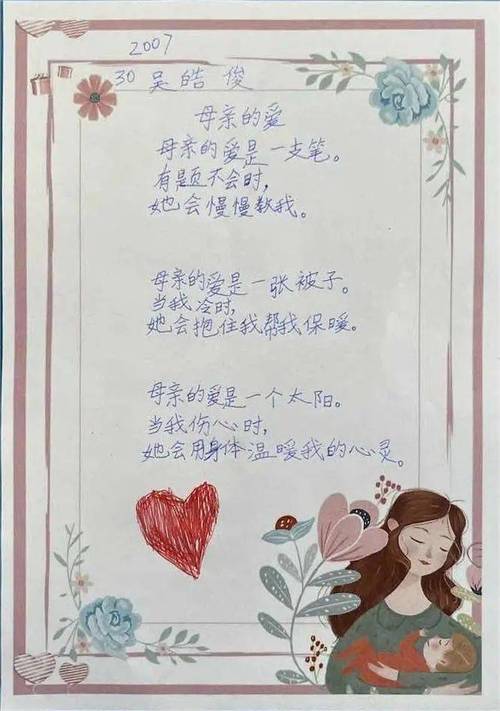 2007
30 吴皓俊
母亲的爱
母亲的爱是一支笔。
有题不会时，
她会慢慢教我。
母亲的爱是一张被子。
当我冷时，
她会抱住我帮我保暖。
母亲的爱是一个太阳。
当我伤心时，
她会用身体温暖我的心灵。